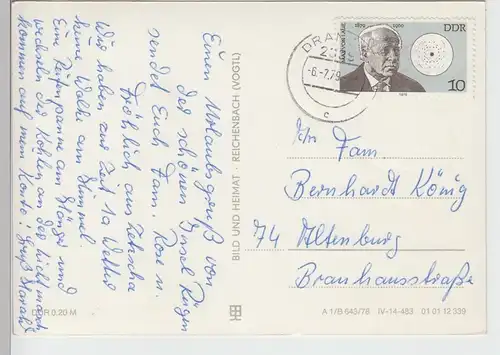 Einen Urlaubsgruß von
der schönen Insel Rügen
sendet Euch Fam. Rose u.
Fröhlich aus
Wir haben zur Zeit 1a Wetter
keine Wolke am Himmel.
Eine am und
wechseln der Kohlen an der Lichtmasch
kommen auf mein Konto! Gruß Harald
BILD UND HEIMAT · REICHENBACH (VOGTL)
DDR 0,20 M
1879 1960
DDR
10
DRAN
-6.-7.79
c
An Fam.
Bernhardt König
74 Altenburg
Brauhausstraße
A 1/B 645/78 IV-14-483 01 01 12 339